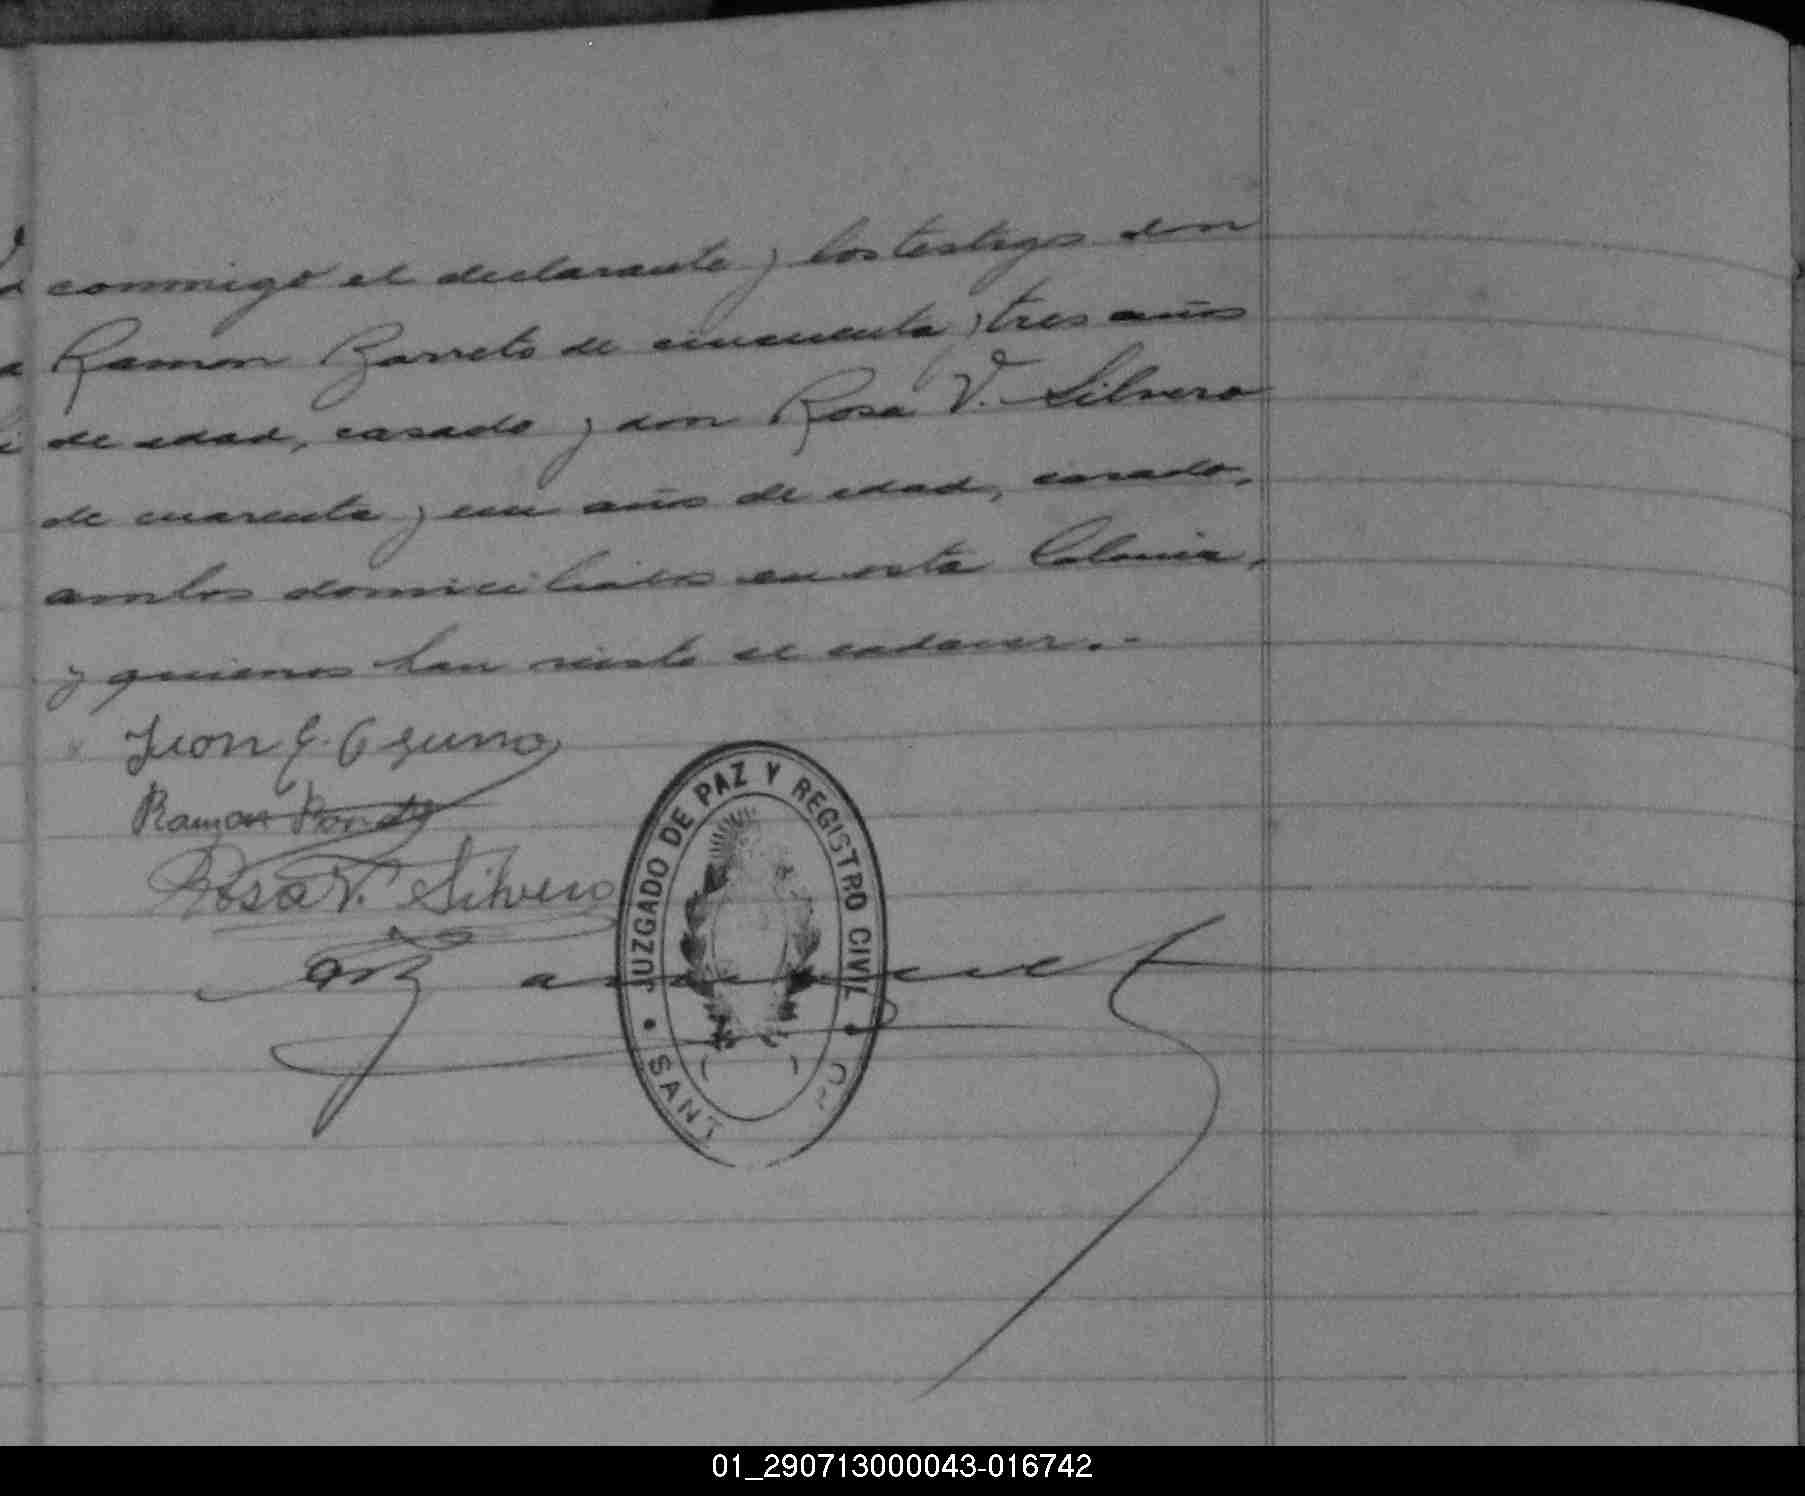 conmigo el declarante y los testigos don
Ramon Barreto de cincuenta y tres años
de edad, casado y don Rosa V. Silvero
de cuarenta y un años de edad, casado,
ambos domiciliados en esta Colonia,
y quienes han visto el cadaver.-
Ramon
Rosa V. Silvero
JUZGADO DE PAZ Y REGISTRO CIVIL
SANT
01_290713000043-016742